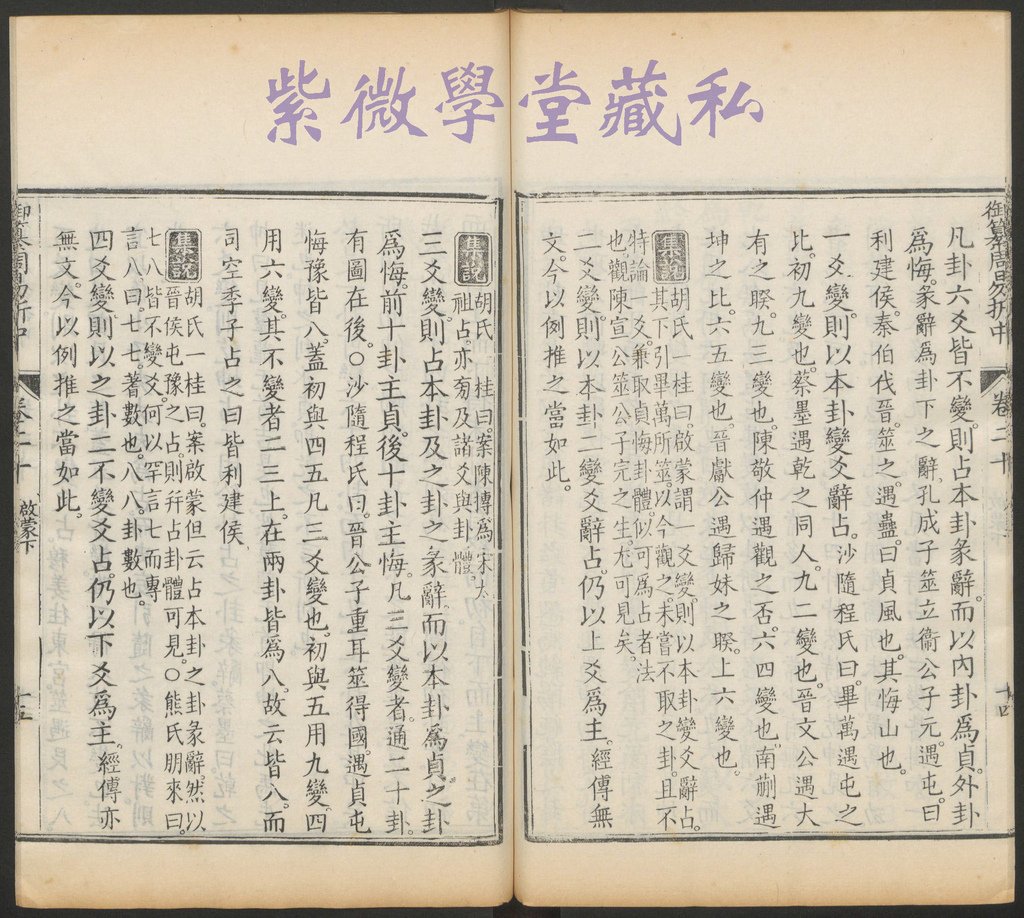 私藏堂學微紫
御纂周易折中
卷二十
十四
凡卦六爻皆不變。則占本卦彖辭。而以內卦爲貞。外卦
爲悔。彖辭爲卦下之辭。孔成子筮立衞公子元。遇屯。曰
利建侯。秦伯伐晉。筮之。遇蠱。曰貞風也。其悔山也。
一爻變。則以本卦變爻辭占。沙隨程氏曰。畢萬遇屯之
比。初九變也。蔡墨遇乾之同人。九二變也。晉文公遇大
有之睽。九三變也。陳敬仲遇觀之否。六四變也。南蒯遇
坤之比。六五變也。晉獻公遇歸妹之睽。上六變也。
集說
胡氏一桂曰。啟蒙謂一爻變。則以本卦變爻辭占。
其下引畢萬所筮。以今觀之。未嘗不取之卦。且不
特論一爻。兼取貞悔卦體。似可爲占者法
也。觀陳宣公筮公子完之生。尤可見矣。
二爻變。則以本卦二變爻辭占。仍以上爻爲主。經傳無
文。今以例推之當如此。
集說
胡氏一桂曰。案陳摶爲宋太
祖占。亦旁及諸爻與卦體。
三爻變。則占本卦及之卦之彖辭。而以本卦爲貞。之卦
爲悔。前十卦主貞。後十卦主悔。凡三爻變者。通二十卦。
有圖在後。○沙隨程氏曰。晉公子重耳筮得國。遇貞屯
悔豫皆八。蓋初與四五凡三爻變也。初與五用九變。四
用六變。其不變者二三上。在兩卦皆爲八。故云皆八。而
司空季子占之曰皆利建侯
集說
胡氏一桂曰。案啟蒙但云占本卦之卦彖辭。然以
晉侯屯豫之占。則幷占卦體可見。○熊氏朋來曰。
七八皆不變爻。何以罕言七而專
言八。曰。七七。蓍數也。八八。卦數也。
四爻變。則以之卦二不變爻占。仍以下爻爲主。經傳亦
無文。今以例推之當如此。
御纂周易折中
卷二十
啟蒙下
十五